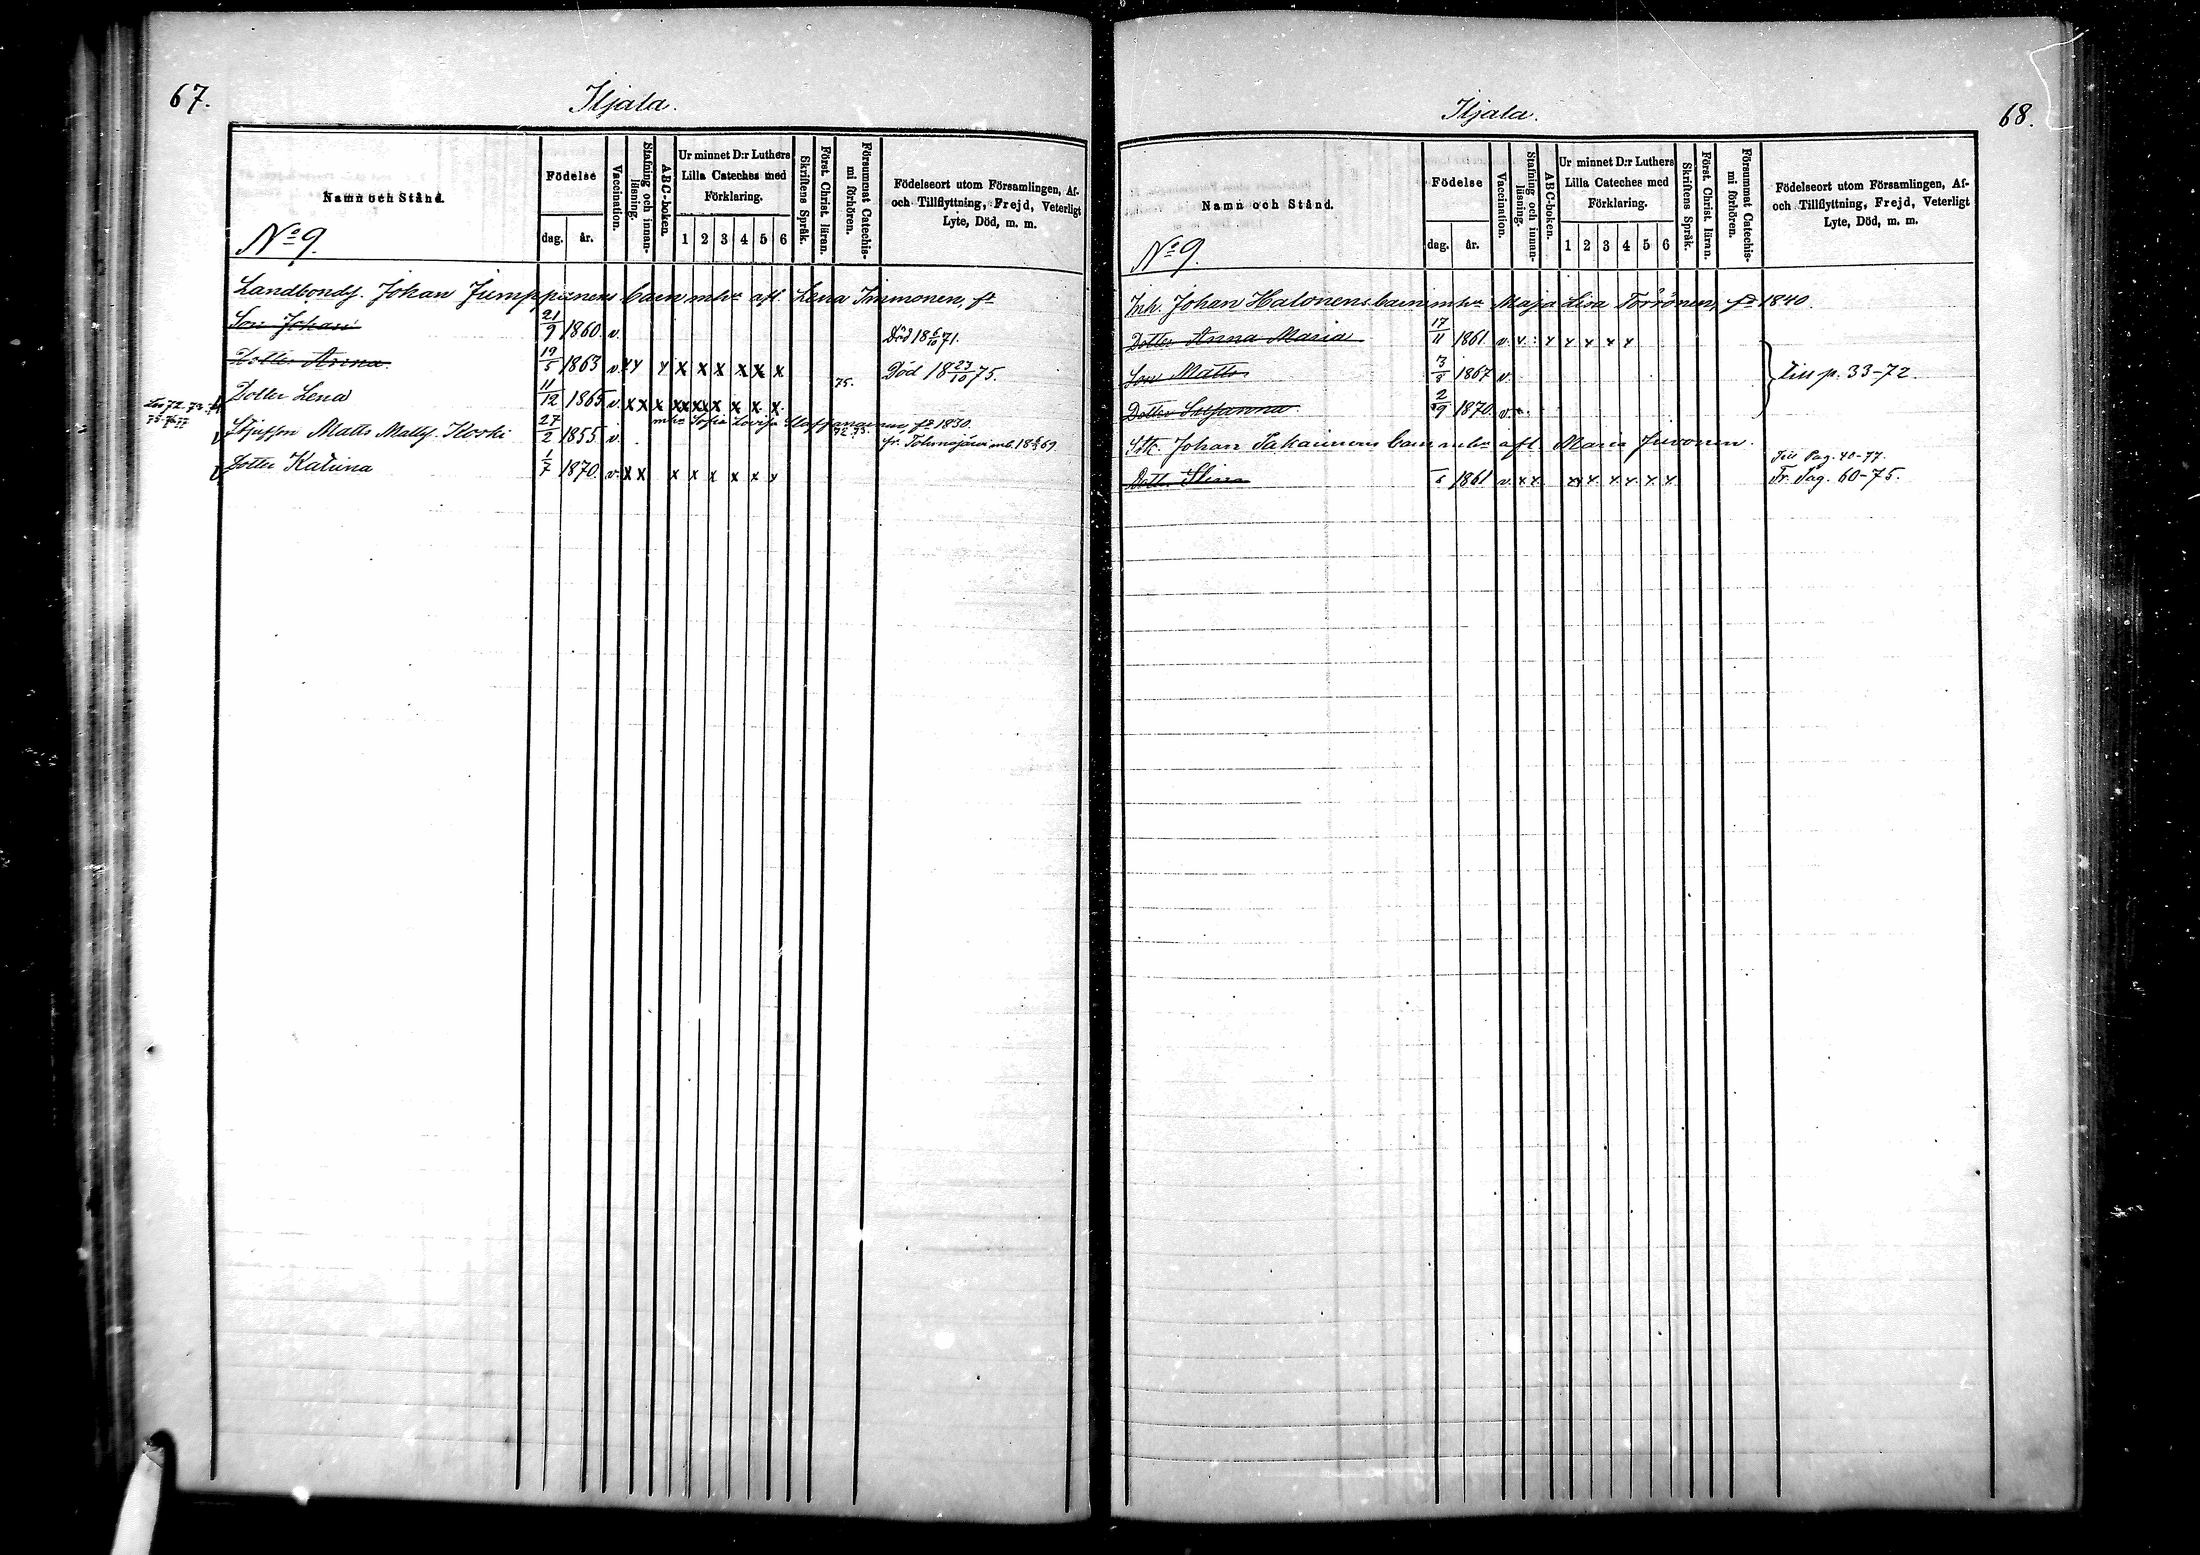 67.
Iljala.
Namn och Stånd.
Födelse
dag.
år.
Vaccination.
Stafning och innanläsning.
ABC-boken.
Ur minnet D:r Luthers
Lilla Cateches med
Förklaring.
1 2 3 4 5 6
Skriftens Språk.
Först. Christ. läran.
Försummat Catechismi förhören.
Födelseort utom Församlingen, Af-
och Tillflyttning, Frejd, Veterligt
Lyte, Död, m. m.
No 9.
Landbonds. Johan Jumppanens barn mhu afl. Lena Immonen, fd
Son Johan 21/9 1860. v. Död 18 6/10 71.
Dotter Anna 19/5 1863 v. x x x x x x x x x Död 18 23/10 75.
75.
Dotter Lena 11/12 1865 v. x x x xx xx x x x x
mhu Sofia Lovisa Staffanainen, fd 1830.
Styfson Matts Matts. 27/2 1855 v. 72. 73. fr. Tohmajärvi
Dotter Katrina 1/7 1870. v. x x x x x x x x
68.
Iljala.
Namn och Stånd.
Födelse
dag.
år.
Vaccination.
Stafning och innanläsning.
ABC-boken.
Ur minnet D:r Luthers
Lilla Cateches med
Förklaring.
1 2 3 4 5 6
Skriftens Språk.
Först. Christ. läran.
Försummat Catechismi förhören.
Födelseort utom Församlingen, Af-
och Tillflyttning, Frejd, Veterligt
Lyte, Död, m. m.
No 9.
Inh. Johan Halonens barn mhu Maja Lisa Törrönen, fd 1840.
Dotter Anna Maria 17/11 1861 v. x x x x x x
Son Matts 3/8 1867 v. Till p. 33-72.
Dotter Susanna 2/9 1870. v.
Johan Sakarinens barn mhu afl. Maria Juvonen.
Till Pag. 40-77.
Dott. Stina 1861 v. x x xx x x x x x Fr. Pag. 60-75.